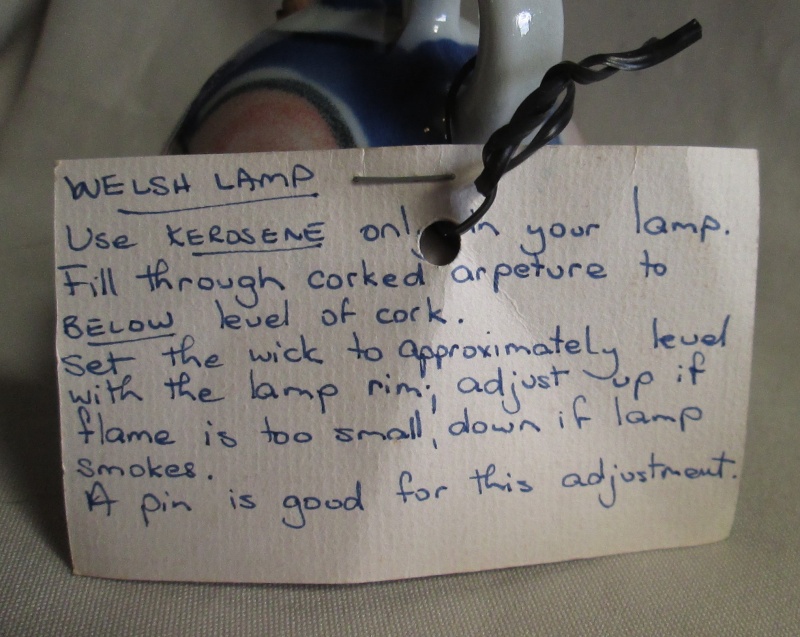 WELSH LAMP
Use KEROSENE only in your lamp.
Fill through corked arpeture to
BELOW level of cork.
Set the wick to approximately level
with the lamp rim; adjust up if
flame is too small, down if lamp
smokes.
A pin is good for this adjustment.